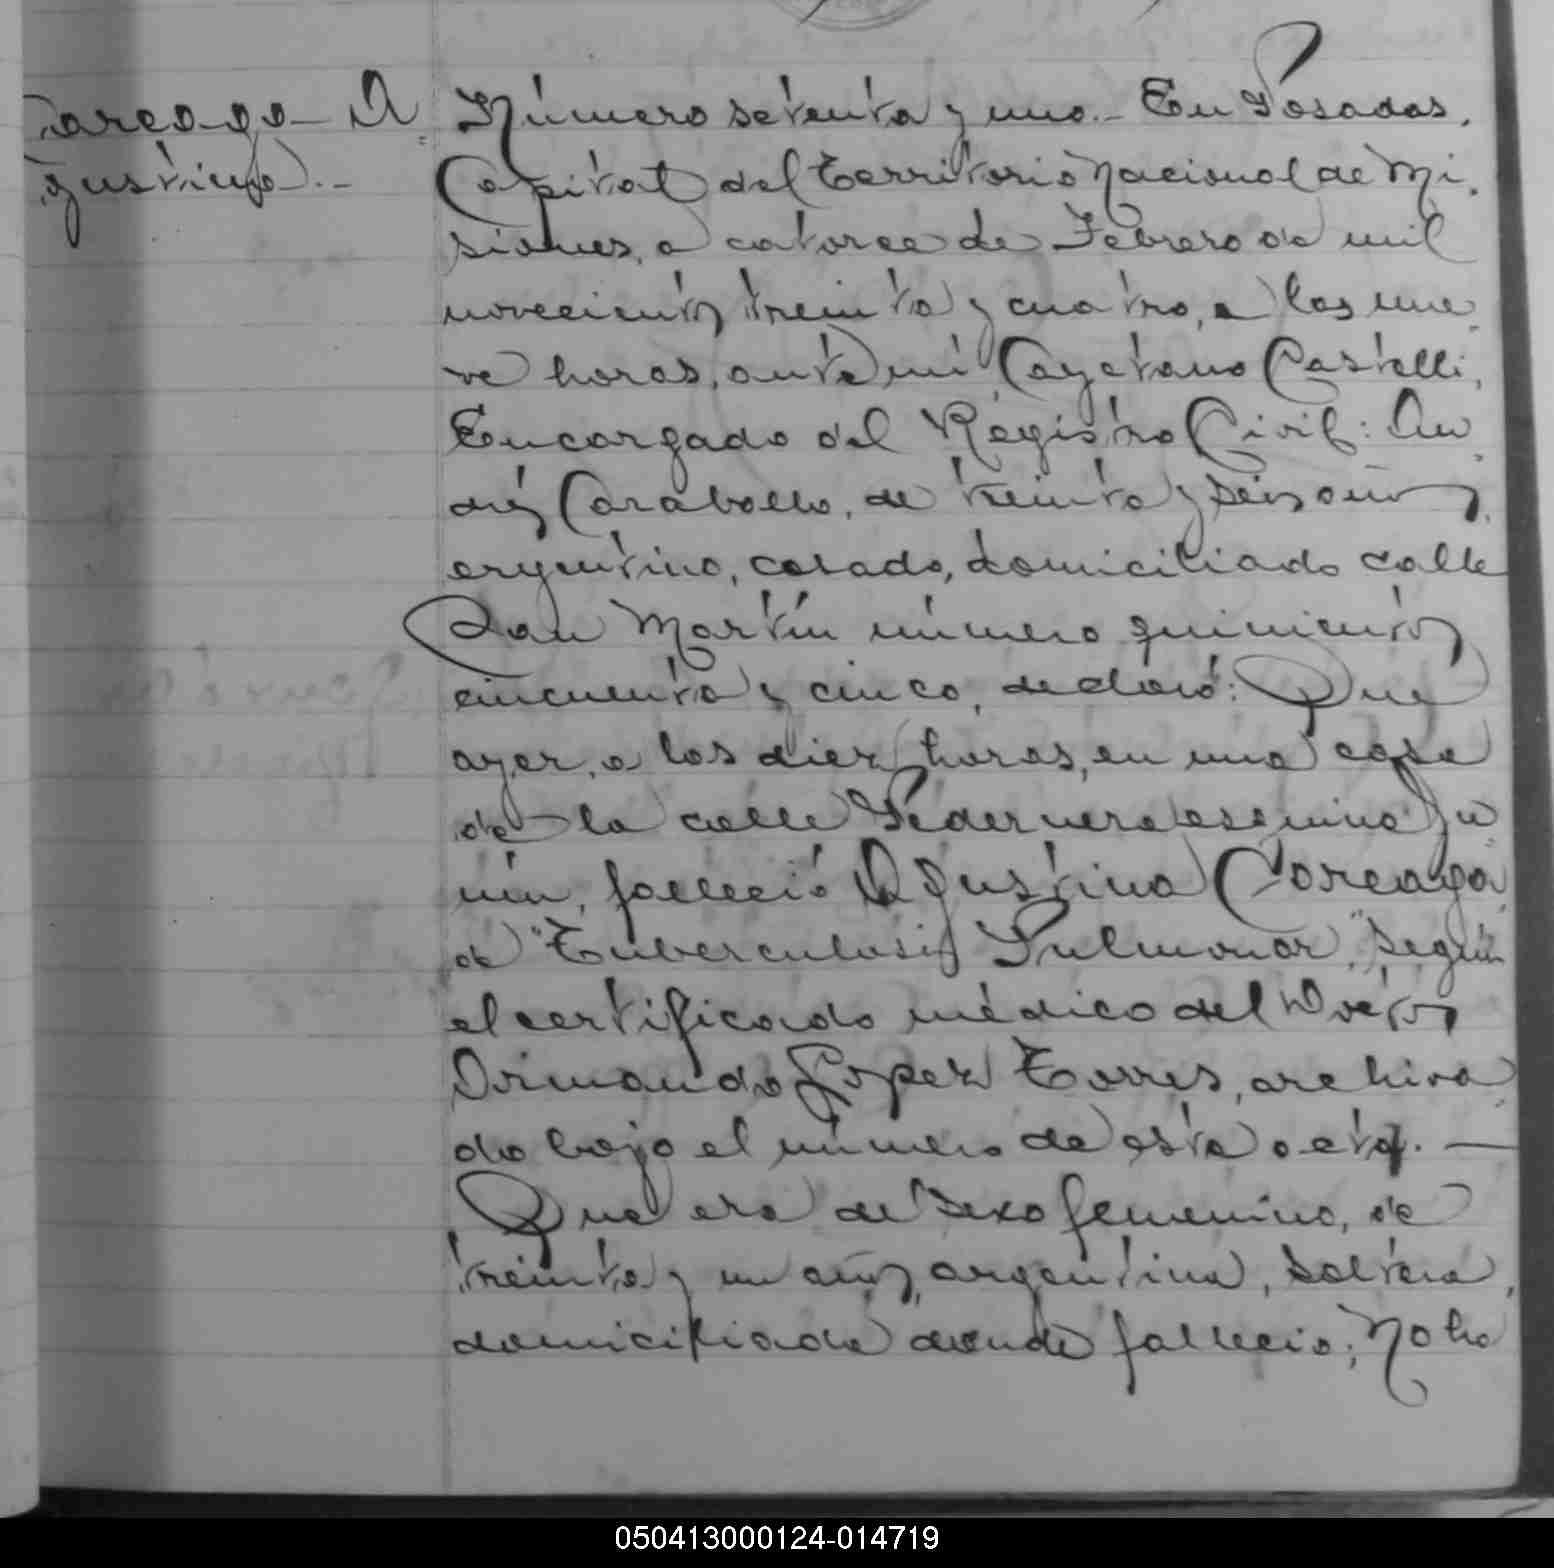 Careaga A
gustina.-
Número setenta y uno.- En Posadas,
Capital del Territorio Nacional de Mi-
siones, a catorce de Febrero de mil
novecientos treinta y cuatro, a las nue-
ve horas, ante mí Cayetano Castelli,
Encargado del Registro Civil: An-
drés Caraballo, de treinta y seis años,
argentino, casado, domiciliado calle
San Martín número quinientos
cincuenta y cinco, declaró: Que
ayer, a las diez horas, en una casa
de la calle Pedernera esquina Ju-
nín, falleció Agustina Careaga,
de "Tuberculosis Pulmonar", según
el certificado médico del Doctor
Armando López Torres, archiva-
do bajo el número de esta acta. —
Que era de sexo femenino, de
treinta y un años, argentina, soltera,
domiciliada donde falleció; No ha
050413000124-014719